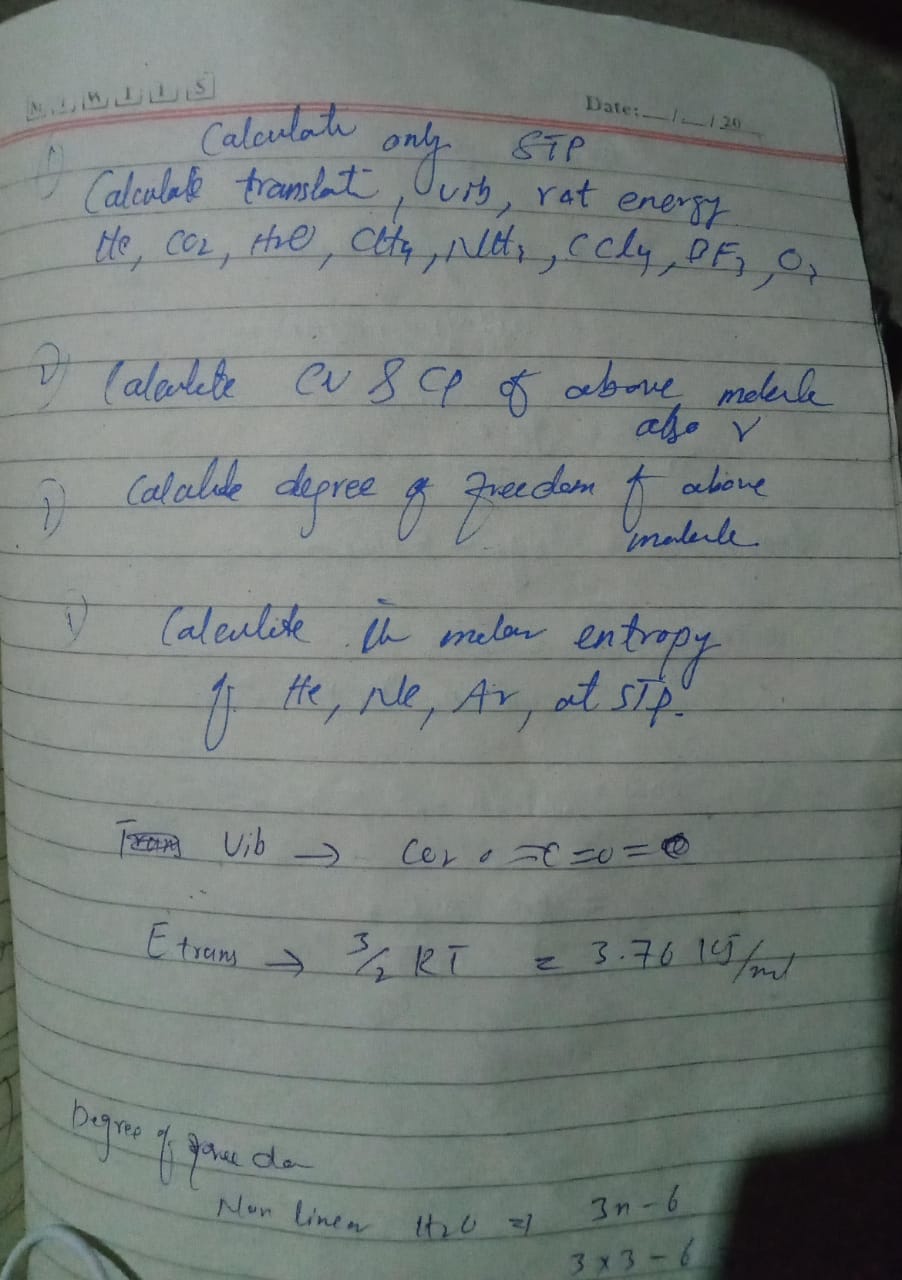 Date: __/__/20__
Calculate only STP
1) Calculate translati, vib, rot energy
He, CO2, H2O, CH4, NH3, CCl4, BF3, O2
2) Calculate CV & CP of above molecule
also γ
Calculate degree of freedom of above
molecule
Calculate the molar entropy
of He, Ne, Ar, at STP.
Vib → CO2
E trans → 3/2 RT = 3.76 KJ/mol
Degree of
Non linear H2O ⇒ 3n-6
3x3-6